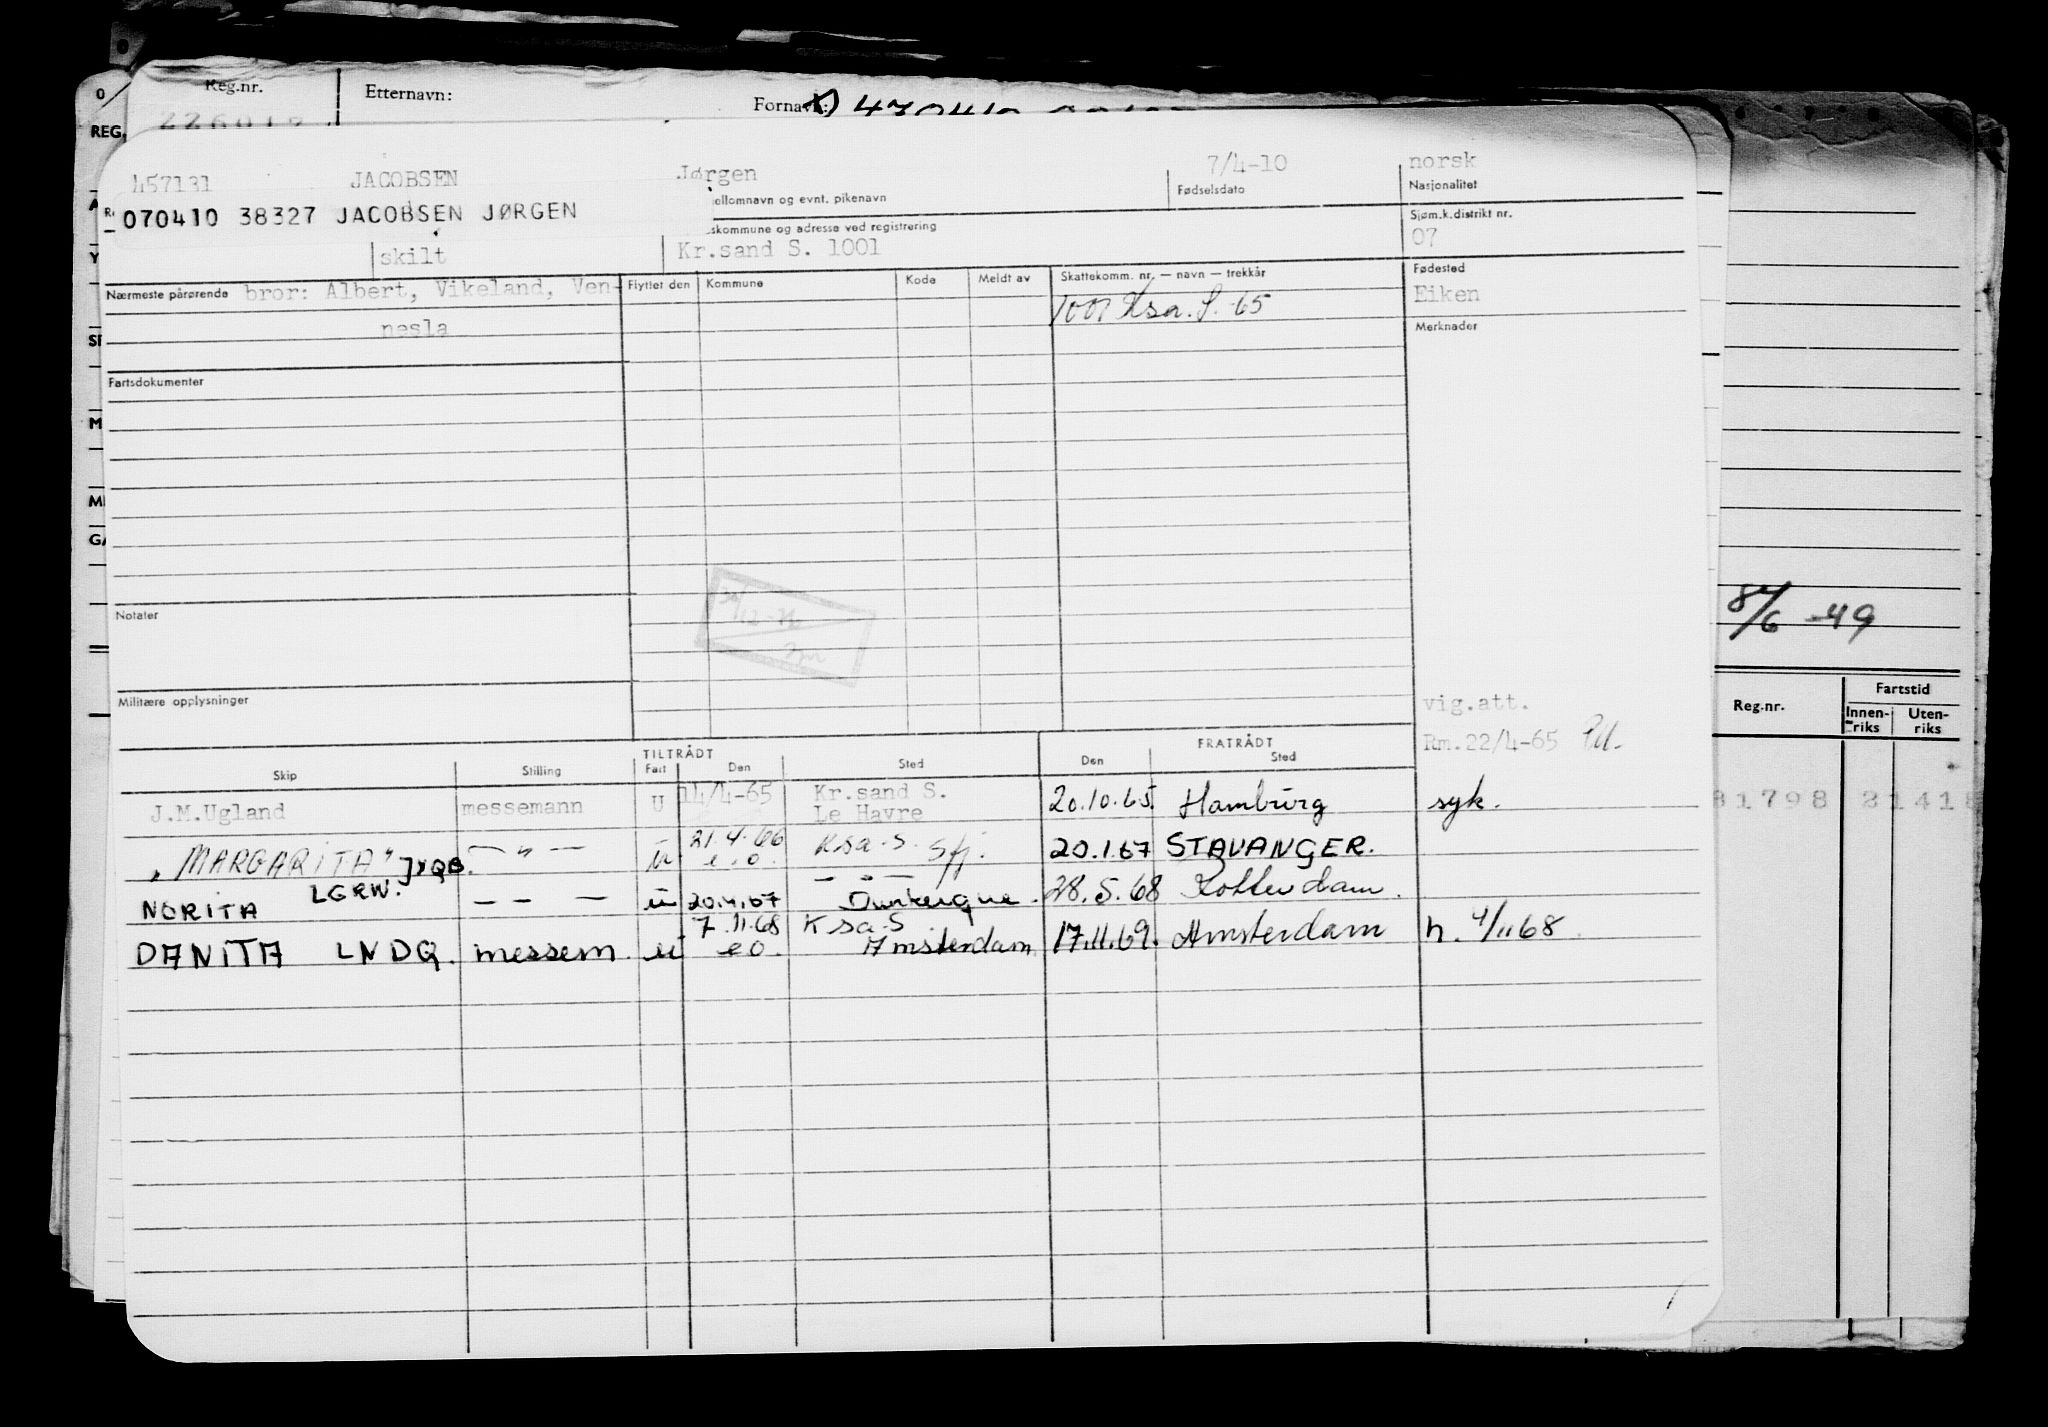 Reg.nr. Etternavn: Fornavn:
REG.
457131 JACOBSEN Jørgen 7/4-10 norsk
Fødselsdato Nasjonalitet
070410 38327 JACOBSEN JØRGEN
ellomnavn og evnt. pikenavn
skommune og adresse ved registrering Sjøm.k.distrikt nr.
skilt Kr.sand S. 1001 07
Nærmeste pårørende bror: Albert, Vikeland, Ven- Flyttet den Kommune Kode Meldt av Skattekomm. nr. — navn — trekkår Fødested
nesla 1001 Ksa. S. -65 Eiken
Merknader
Fartsdokumenter
Notater
8/6 -49
Militære opplysninger
vig.att.
Rm.22/4-65
Reg.nr. Fartstid
Innen-riks Uten-riks
TILTRÅDT FRATRÅDT
Skip Stilling Fart Den Sted Den Sted
J.M.Ugland messemann U 14/4-65 Kr.sand S. Le Havre 20.10.65 Hamburg syk.
"MARGARITA" JXQB. — " — u 21.4.66 e.o. Ksa. S. Sfj. 20.1.67 STAVANGER.
NORITA LGRW. — — — u 20.4.67 — " — Dunkerque. 28.5.68 Rotterdam.
DANITA LNDQ. messem. u 7.11.68 eo. Ksa. S Amsterdam 17.11.69. Amsterdam h. 4/11 68.
81798